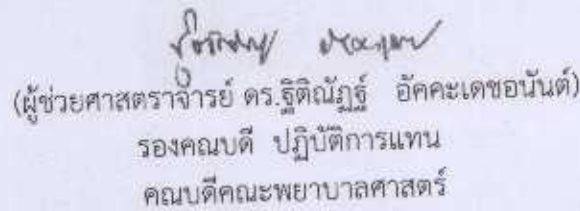 (ผู้ช่วยศาสตราจารย์ ดร.ฐิติณัฏฐ์ อัคคะเดชอนันต์)
รองคณบดี ปฏิบัติการแทน
คณบดีคณะพยาบาลศาสตร์